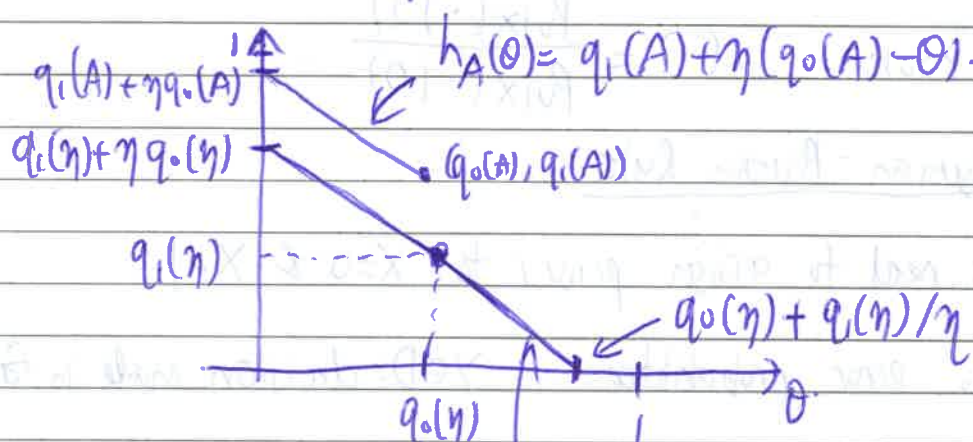 1
h_A(θ) = q₁(A) + η(q₀(A) − θ).
q₁(A) + ηq₀(A)
q₁(η) + η q₀(η)
(q₀(A), q₁(A))
q₁(η)
q₀(η) + q₁(η)/η
θ
q₀(η)
1